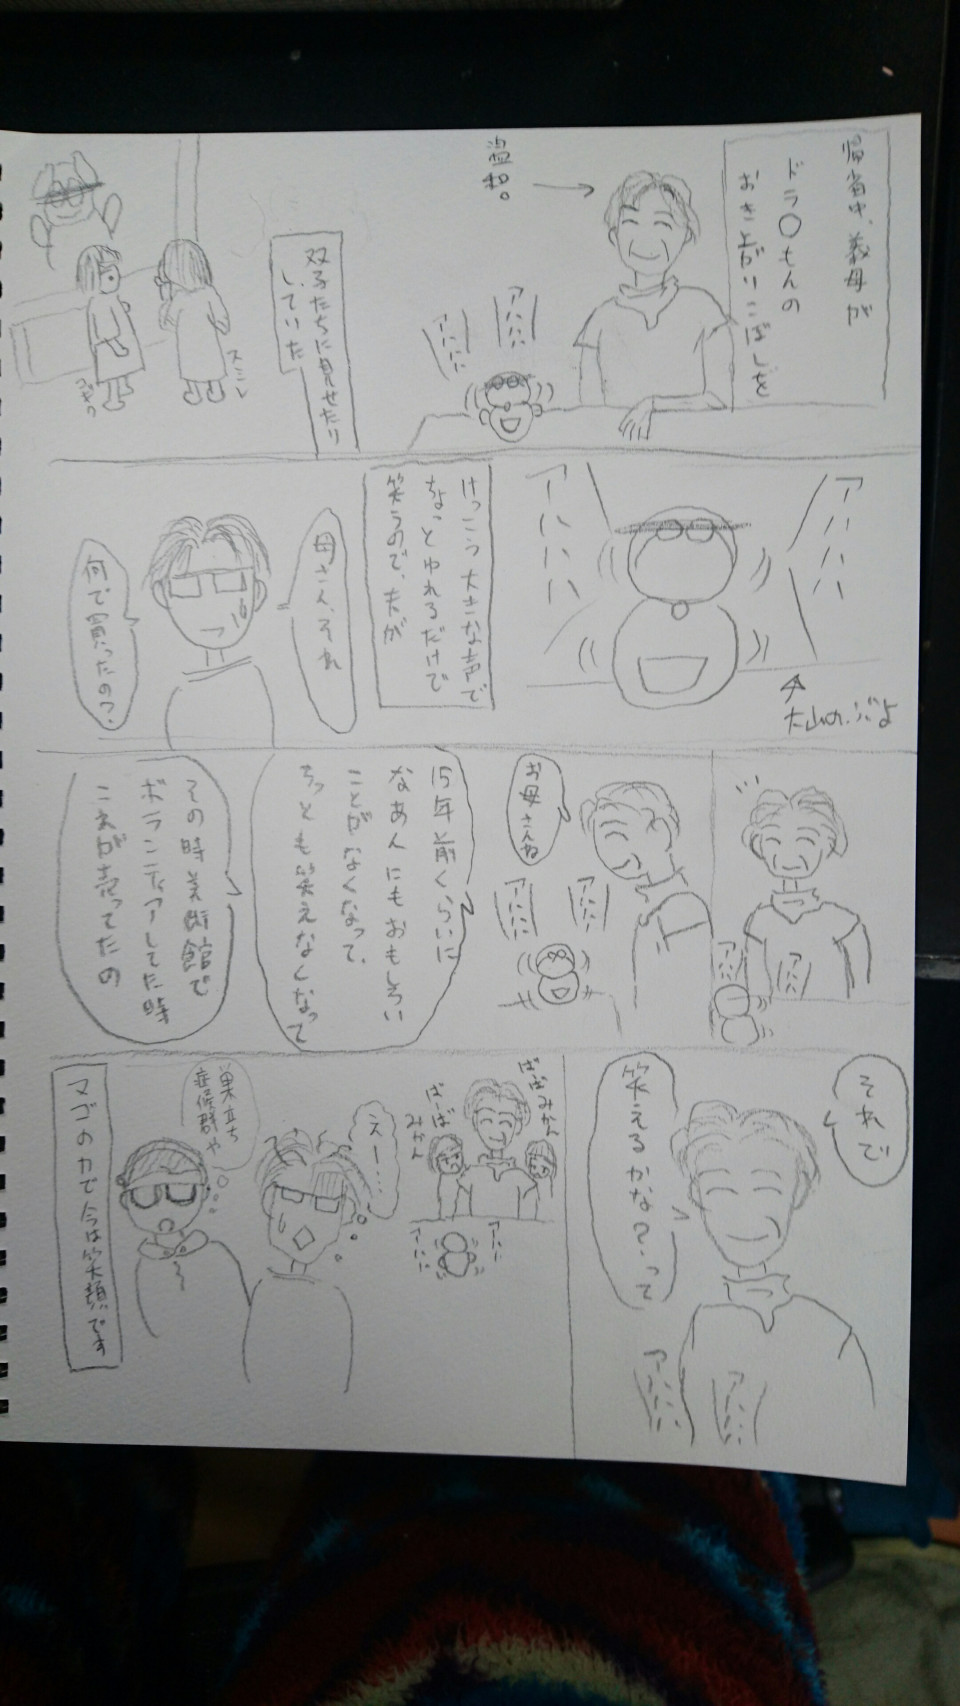 帰省中、義母が
ドラ〇もんの
おき上がりこぼしを
温和。
アハハハ
アハハハ
双子たちに見せたり
していた
スミレ
アハハハ
アハハハ
大山のぶよ
けっこう大きな声で
ちょっとゆれるだけで
笑うので、夫が
母さん、それ
何で買ったの?
アハハハ
アハハハ
お母さんね
アハハハ
アハハハ
15年前くらいに
なあんにもおもしろい
ことがなくなって、
ちっとも笑えなくなって
その時美術館で
ボランティアしてた時
これが売ってたの
それで
笑えるかな?って
アハハハ
アハハハ
ばぁばみかん
ばぁば
みかん
アハハハ
アハハハ
えー…
巣立ち
症候群や
マゴの力で今は笑顔です